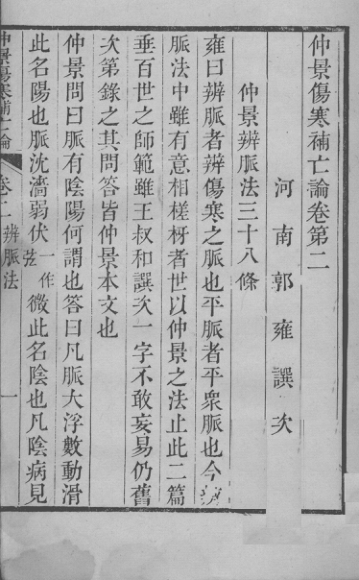 仲景傷寒補亡論卷第二
河南郭雍譔次
仲景辨脈法三十八條
雍曰辨脈者辨傷寒之脈也平脈者平衆脈也今
脈法中雖有意相槎枒者世以仲景之法止此二篇
垂百世之師範雖王叔和譔次一字不敢妄易仍舊
次第錄之其問答皆仲景本文也
仲景問曰脈有陰陽何謂也答曰凡脈大浮數動滑
此名陽也脈沈濇弱伏一作弦微此名陰也凡陰病見
仲景傷寒補亡論 卷二 辨脈法 一